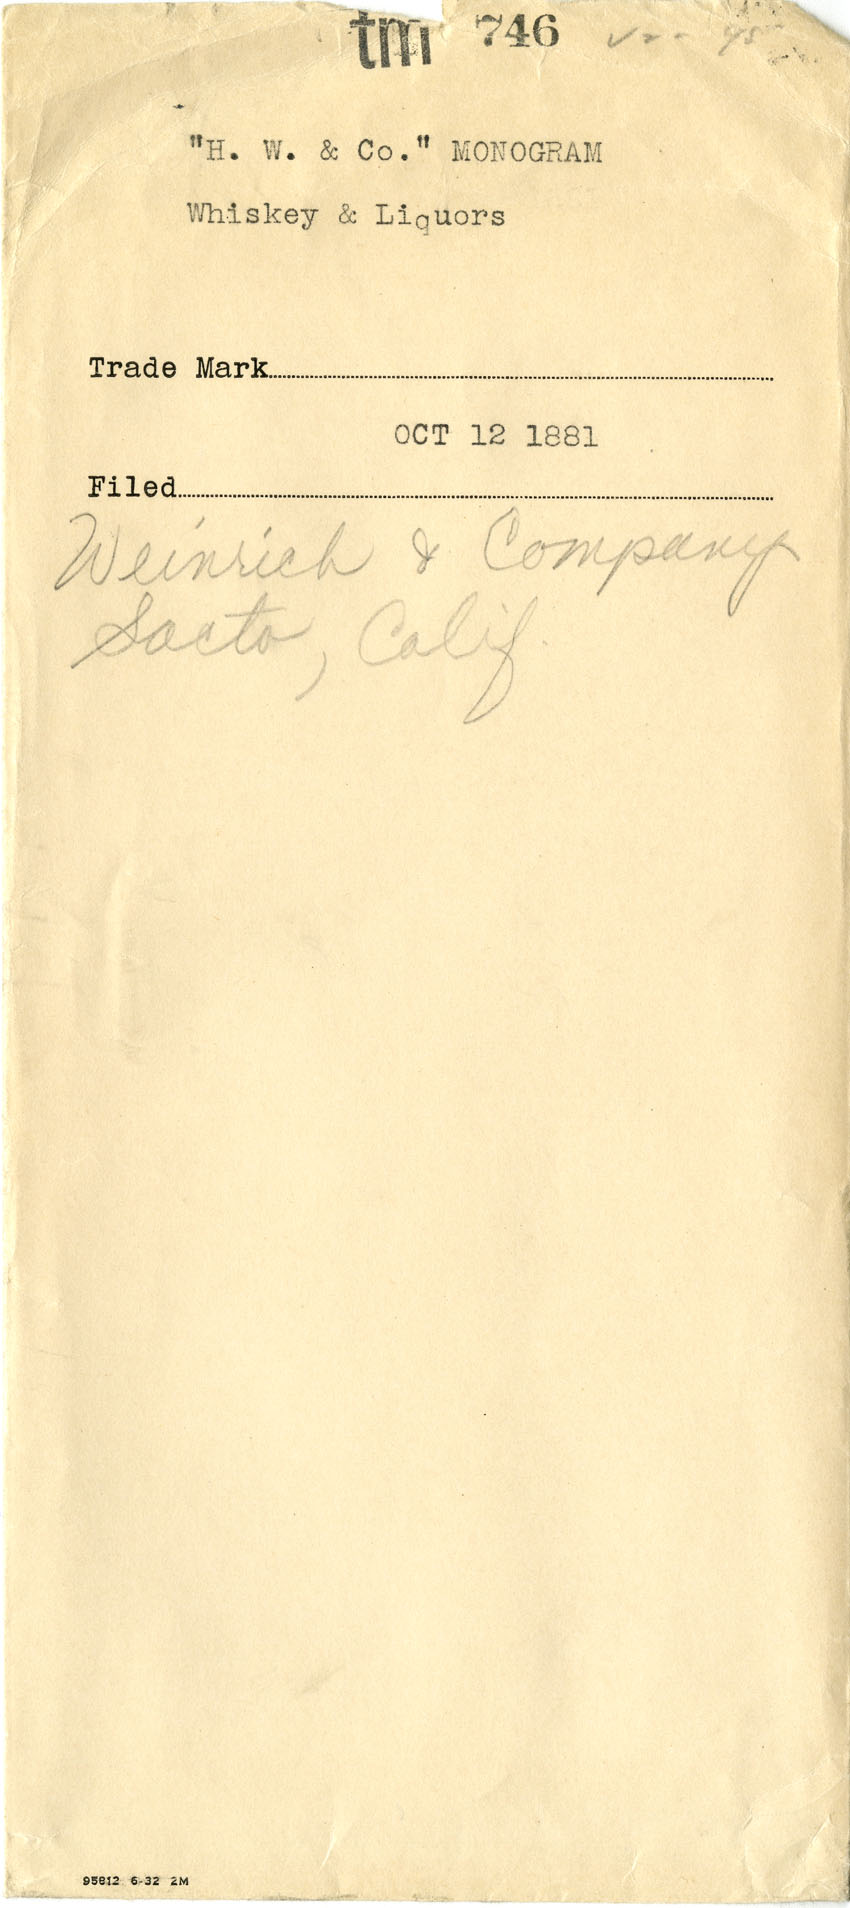 tm 746
"H. W. & Co." MONOGRAM
Whiskey & Liquors
Trade Mark
OCT 12 1881
Filed
Weinrich & Company
Sacto, Calif.
95812 6-32 2M